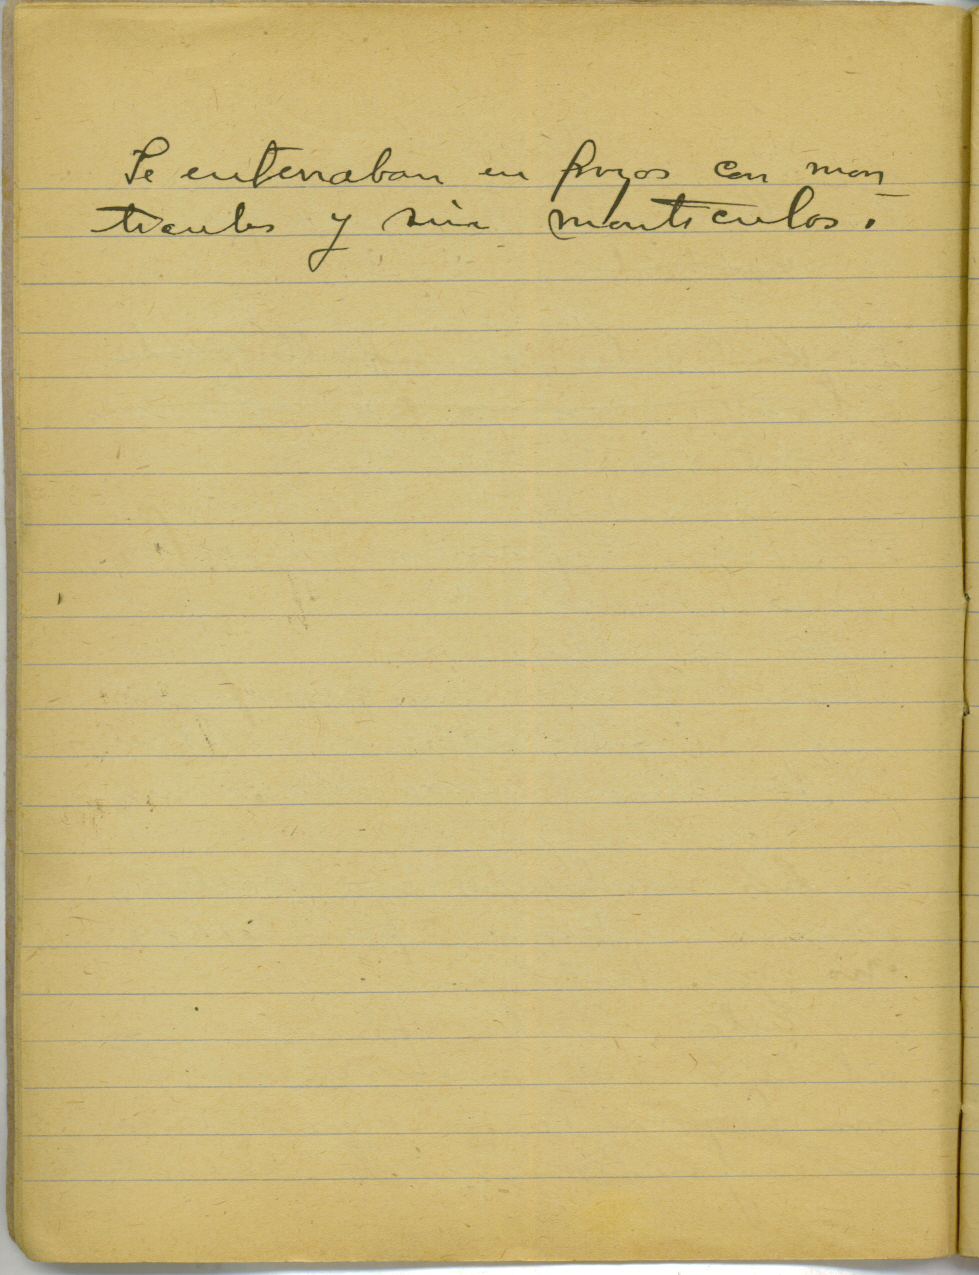 Se enterraban en pozos con mon
tículos y sin montículos.